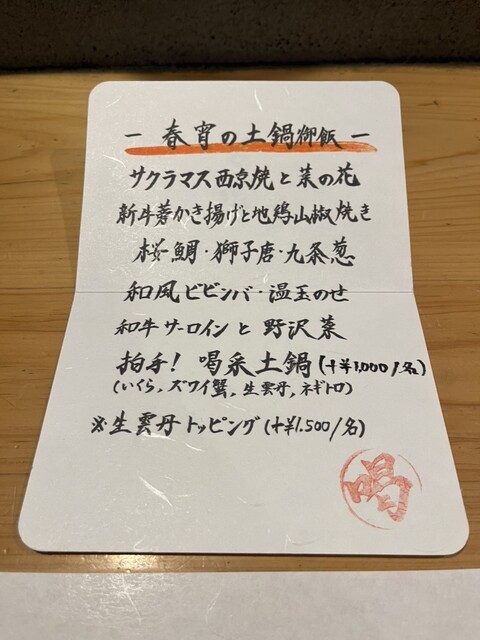 － 春宵の土鍋御飯 －
サクラマス西京焼と菜の花
新牛蒡かき揚げと地鶏山椒焼き
桜鯛・獅子唐・九条葱
和風ビビンバ・温玉のせ
和牛サーロインと野沢菜
拍手！喝采土鍋(+¥1,000/名)
(いくら，ズワイ蟹，生雲丹，ネギトロ)
※生雲丹トッピング(+¥1.500/名)
喝